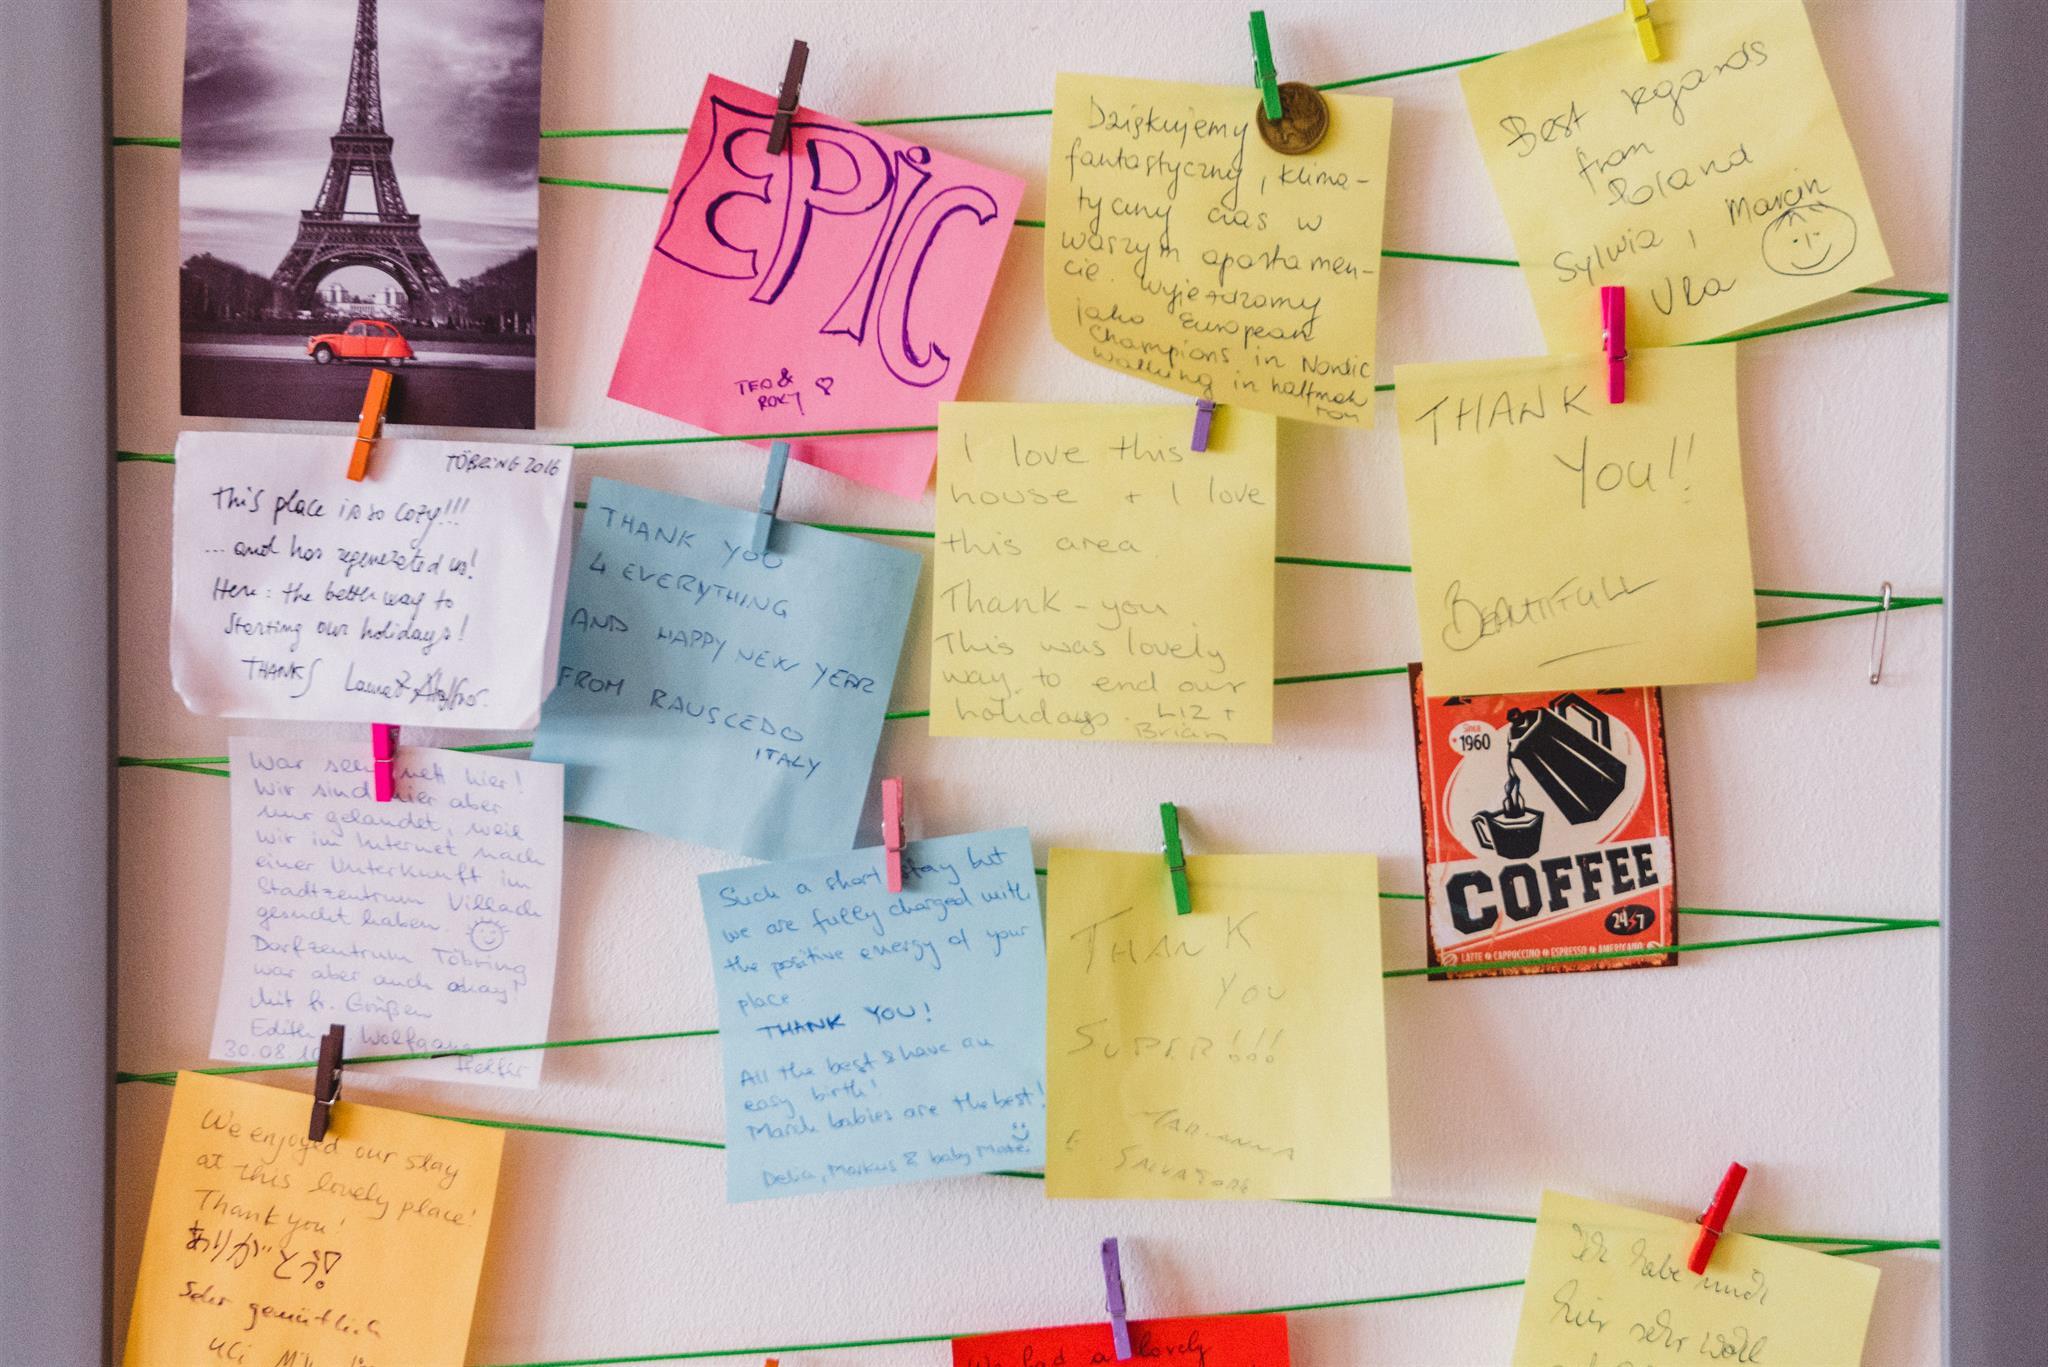 EPIC
TEO &
ROKY
Dziękujemy
fantastyczny, klima-
tyczny czas w
waszym apartamen-
cie. Wyjeżdzamy
jako European
Champions in Nordic
walking in halfmara
ton
Best regards
from
Poland
Sylwia, Marcin
Ula
TÖBRING 2016
This place is so cozy!!!
...and has regenerated us!
Here: the better way to
starting our holidays!
THANKS
THANK YOU
4 EVERYTHING
AND HAPPY NEW YEAR
FROM RAUSCEDO
ITALY
I love this
house + I love
this area.
Thank-you
This was lovely
way to end our
holidays. Liz +
Brian
THANK
YOU!!
BEAUTIFULL
Since
1960
COFFEE
24/7
LATTE CAPPUCCINO ESPRESSO AMERICANO
War sehr nett hier!
Wir sind hier aber
nur gelandet, weil
wir im Internet nach
einer Unterkunft im
Stadtzentrum Villach
gesucht haben.
Dorfzentrum Töbring
war aber auch okay!
Mit fr. Grüßen
Edith Wolfgang
30.08.16
Such a short stay but
we are fully charged with
the positive energy of your
place
THANK YOU!
All the best & have an
easy birth!
March babies are the best!
Delia, Markus & baby
THANK
YOU
SUPER!!!
MARIANNA
E SALVATORE
We enjoyed our stay
at this lovely place!
Thank you!
ありがとう!
Sehr gemütlich
We had a lovely
Ich habe mich
hier sehr wohl